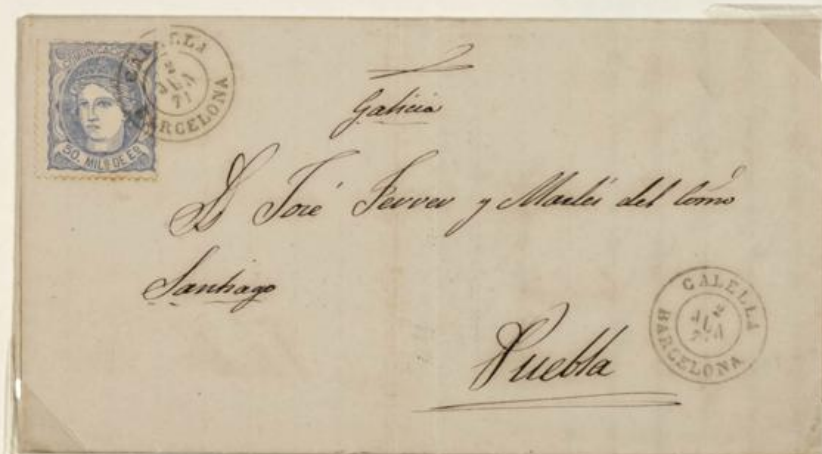 COMUNICACIONES
50. MILS DE E.
CALELLA
2
JUL
71
BARCELONA
Galicia
D José Ferrer y Martés del Comº
Santiago
Puebla
CALELLA
2
JUL
71
BARCELONA